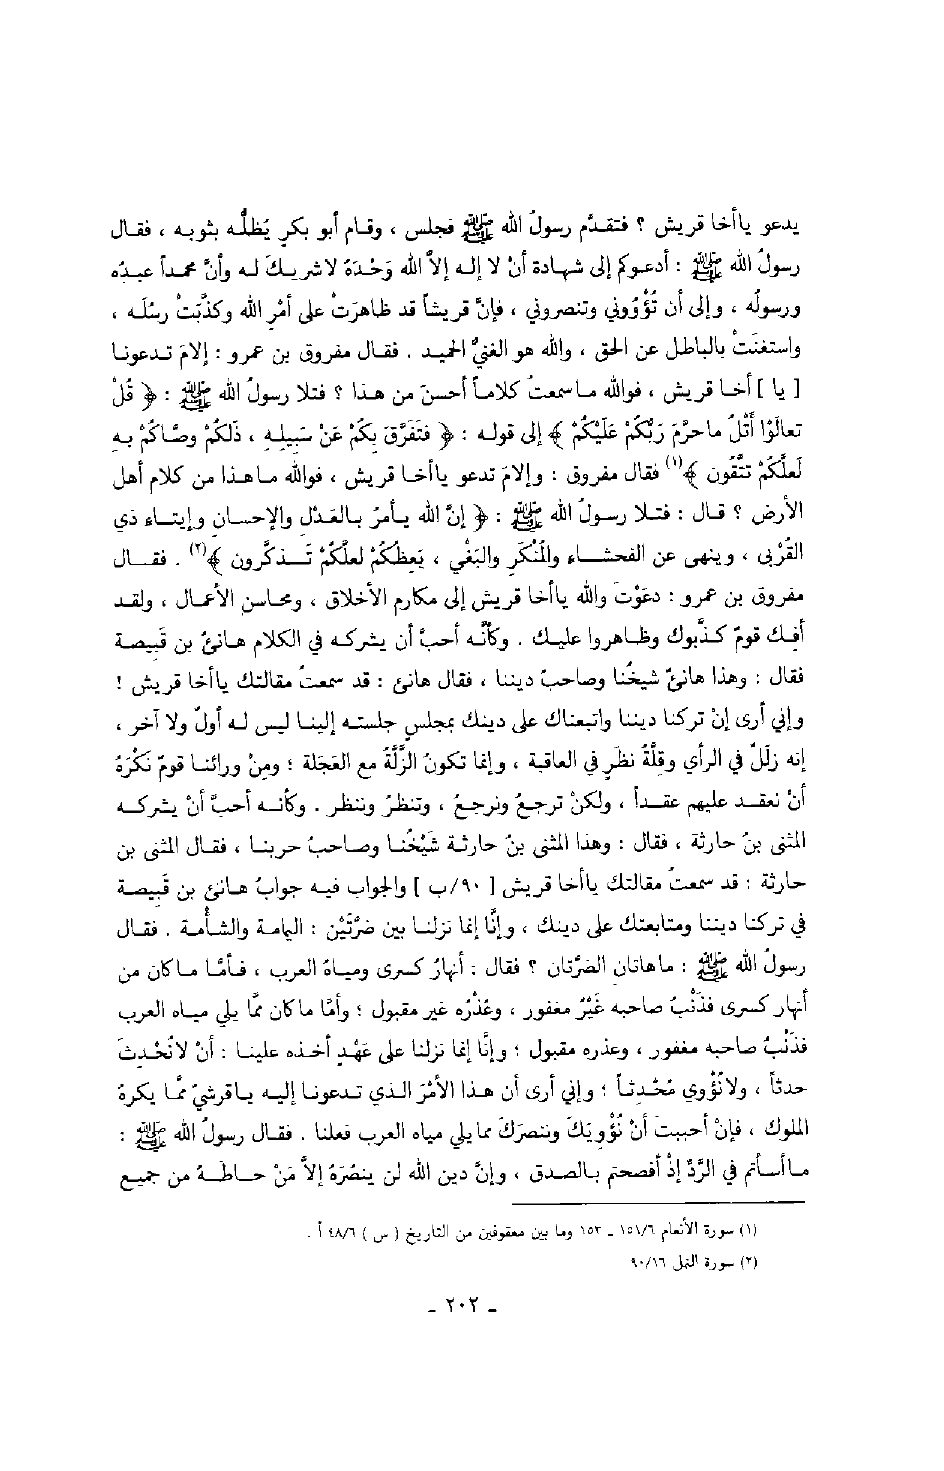 يدعو ياأخا قريش ؟ فتقدّم رسولُ الله ﷺ فجلس ، وقام أبو بكرٍ يُظلُّه بثوبه ، فقال
رسولُ الله ﷺ : أدعوكم إلى شهادة أنْ لا إله إلاَّ الله وَحْدَهُ لاشريكَ له وأنَّ محمداً عبدُه
ورسولُه ، وإلى أن تُؤْوُوني وتنصروني ، فإنَّ قريشاً قد ظاهرتْ على أمْرِ الله وكذَّبَتْ رسُلَه ،
واستغنَتْ بالباطل عن الحق ، والله هو الغنيُّ الحميد . فقال مفروق بن عمرو : إلامَ تدعونا
[ يا ] أخا قريش ، فوالله ماسمعتُ كلاماً أحسنَ من هذا ؟ فتلا رسولُ الله ﷺ : ﴿ قُلْ
تعالَوْا أَتْلُ ماحرَّمَ رَبُّكُمْ عَلَيْكُمْ ﴾ إلى قوله : ﴿ فتَفَرَّقَ بِكُمْ عَنْ سَبِيلِهِ ، ذَلَكُمْ وصَّاكُمْ بهِ
لَعلَّكُمْ تتَّقُون ﴾(١) فقال مفروق : وإلامَ تدعو ياأخا قريش ، فوالله ماهذا من كلام أهل
الأرض ؟ قال : فتلا رسولُ الله ﷺ : ﴿ إنَّ الله يأمرُ بالعَدْل والإحسان وإيتاء ذي
القُرْبى ، وينهى عن الفحشاء والمُنْكَرِ والبَغْي ، يَعِظُكُمْ لعلَّكُمْ تَذكَّرون ﴾(٢) . فقال
مفروق بن عمرو : دعَوْتَ والله ياأخا قريش إلى مكارم الأخلاق ، ومحاسن الأعمال ، ولقد
أفِك قومٌ كذَّبوك وظاهروا عليك . وكأنَّه أحبَّ أن يشركه في الكلام هانئُ بن قَبِيصة
فقال : وهذا هانئ شيخُنا وصاحبُ ديننا ، فقال هانئ : قد سمعتُ مقالتك ياأخا قريش !
وإني أرى إنْ تركنا ديننا واتبعناك على دينك بمجلسٍ جلسته إلينا ليس له أولٌ ولا آخر ،
إنه زلَلٌ في الرأي وقِلَّةُ نظَرٍ في العاقبة ، وإنما تكونُ الزَّلَّةُ مع العَجَلة ؛ ومِنْ ورائنا قومٌ نَكْرَهُ
أنْ نعقد عليهم عقداً ، ولكنْ ترجعُ ونرجعُ ، وتنظرُ وننظر . وكأنه أحبَّ أنْ يشركه
المثنى بنُ حارثة ، فقال : وهذا المثنى بنُ حارثة شَيْخُنا وصاحبُ حربنا ، فقال المثنى بن
حارثة : قد سمعتُ مقالتك ياأخا قريش [ ٩٠/ب ] والجواب فيه جوابُ هانئ بن قَبِيصة
في تركنا ديننا ومتابعتك على دينك ، وإنَّا إنما نزلنا بين ضَرَّتَيْن : اليمامة والشأمة . فقال
رسولُ الله ﷺ : ماهاتان الضرَّتان ؟ فقال : أنهارُ كسرى ومياهُ العرب ، فأمَّا ماكان من
أنهار كسرى فذَنْبُ صاحبه غَيْرُ مغفور ، وعُذْرُه غير مقبول ؛ وأمَّا ماكان ممَّا يلي مياه العرب
فذَنْبُ صاحبه مغفور ، وعذره مقبول ؛ وإنَّا إنما نزلنا على عَهْدٍ أخذه علينا : أنْ لانُحْدِثَ
حدثاً ، ولانُؤْوي مُحْدِثاً ؛ وإني أرى أن هذا الأمْرَ الذي تدعونا إليه ياقرشيّ ممَّا يكرهُ
الملوك ، فإنْ أحببتَ أنْ نُؤْوِيَكَ وننصرَكَ مما يلي مياه العرب فعلنا . فقال رسولُ الله ﷺ :
ماأسأتم في الرَّدِّ إذْ أفصحتم بالصدق ، وإنَّ دين الله لن ينصُرَهُ إلاَّ مَنْ حاطهُ من جميع
(١) سورة الأنعام ١٥١/٦ ـ ١٥٣ وما بين معقوفين من التاريخ ( س ) ٤٨/٦ أ .
(٢) سورة النمل ٩٠/١٦
ـ ٢٠٢ ـ